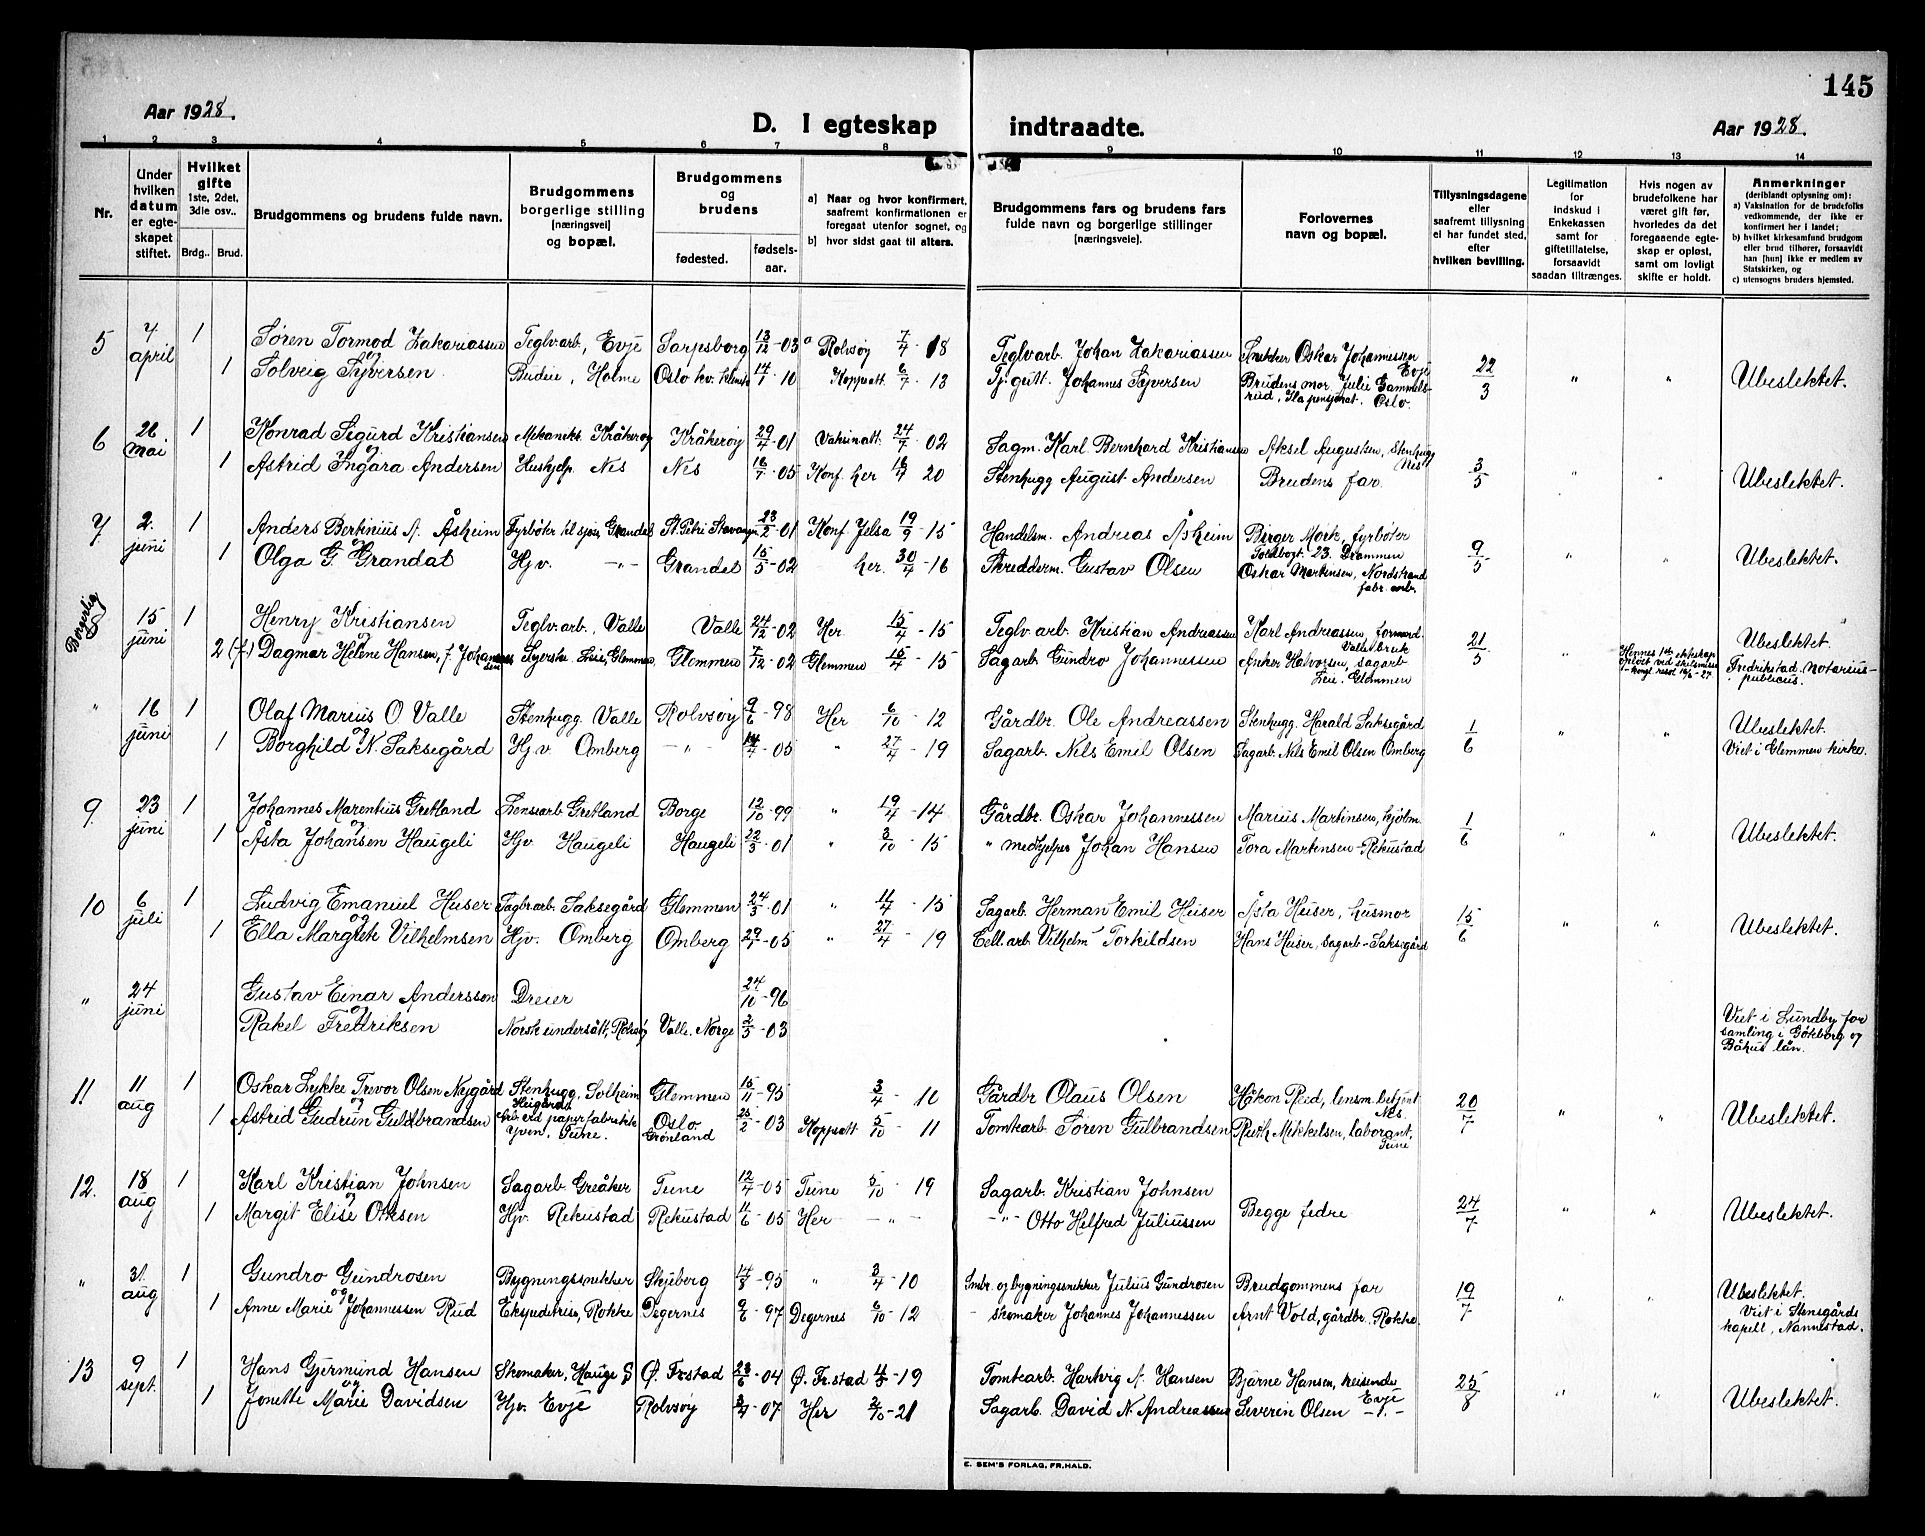 145
Aar 1928.
D. I egteskap
indtraadte.
Aar 1928.
1 2 3 4 5 6 7 8 9 10 11 12 13 14
Nr.
Under hvilken datum er egteskapet stiftet.
Hvilket gifte 1ste, 2det, 3die osv..
Brdg.. Brud.
Brudgommens og brudens fulde navn.
Brudgommens borgerlige stilling [næringsvei] og bopæl.
Brudgommens og brudens
fødested.
fødsels-aar.
a) Naar og hvor konfirmert, saafremt konfirmationen er foregaat utenfor sognet, og
b) hvor sidst gaat til alters.
Brudgommens fars og brudens fars fulde navn og borgerlige stillinger [næringsveie].
Forlovernes navn og bopæl.
Tillysningsdagene eller saafremt tillysning ei har fundet sted, efter hvilken bevilling.
Legitimation for indskud i Enkekassen samt for giftetillatelse, forsaavidt saadan tiltrænges.
Hvis nogen av brudefolkene har været gift før, hvorledes da det foregaaende egteskap er opløst, samt om lovligt skifte er holdt.
Anmerkninger (deriblandt oplysning om): a) Vaksination for de brudefolks vedkommende, der ikke er konfirmert her i landet; b) hvilket kirkesamfund brudgom eller brud tilhører, forsaavidt han [hun] ikke er medlem av Statskirken, og c) utensogns bruders hjemsted.
5 7. april 1 Søren Tormod Zakariassen Teglvarb, Evje Sarpsborg 13/12-03 a Rolvsøy 7/4-18 Teglvarb. Johan Zakariassen Snekker Oskar Johannessen Evje 22/3 " "
og
1 Solveig Syversen. Budeie, Holme Oslo 14/1 10 Koppvatt. 6/7-13 Tj.gutt. Johannes Syversen Brudens mor, Julie Gammelsrud, Ila pensjonat. Oslo. Ubeslektet.
6 26 mai 1 Konrad Sigurd Kristiansen Mekaniks. Kråkerøy Kråkerøy 29/4-01 Vaksinatt. 24/7-02 Sagm. Karl Bernhard Kristiansen Aksel Augustsen, Stenhugg Nes 3/5 " "
og
1 Astrid Ingara Andersen Hushjelp Nes Nes 16/7-05 Konf. her 20 Stenhugg August Andersen Brudens far. Ubeslektet.
7 2. juni 1 Anders Berkinius A. Åsheim Fyrbøter til sjøs, Grandal St. Petri Stavanger 23/2-01 Konf. Jelsa 19/9-15 Handelsm. Andreas Åsheim Birger Mork, fyrbøter Toldbogt. 23. Drammen 9/5 " "
og
1 Olga G. Grandal Hjv. -"- Grandal 15/5-02 her. 30/4-16 Skredderm. Gustav Olsen Oskar Martinsen, Nordstrand fabr. arb. Ubeslektet.
Borgerlig 15 juni 1 Henry Kristiansen Teglv.arb., Valle Valle 24/12-02 Her. 15/4-15 Teglv.arb. Kristian Andreassen Karl Andreassen, formand. Valle bruk 21/5 "
og
2 (f) Dagmar Helene Hansen, f. Johannessen Syerske Leie, Glemmen, Glemmen 7/12-02 Glemmen 15/4-15 Sagarb. Gundro Johannessen Anker Halvorsen, sagarb Leie. Glemmen Hennes 1ste ekteskap opløst ved skilsmisse Ubeslektet. Fredrikstad. Notarius-publicus.
" 16 juni 1 Olaf Marius O Valle Stenhugg. Valle Rolvsøy 9/6-98 Her 6/10-12 Gårdbr. Ole Andreassen Stenhugg. Harald Saksegård 1/6 " "
og
1 Borghild N. Saksegård Hjv Omberg -"- 14/4-05 " 27/4-19 Sagarb. Nils Emil Olsen Sagarb. Nils Emil Olsen Omberg Ubeslektet. Viet i Glemmen kirke.
9. 23 juni 1 Johannes Marentius Gretland Lensearb Gretland Borge 12/10-99 " 19/4-14 Gårdbr. Oskar Johannessen Marius Martinsen, Hjolm. 1/6 " "
og
1 Åsta Johansen Haugeli Hjv. Haugeli Haugeli 22/3-01 " 3/10-15 " medhjelper Johan Hansen Tora Martinsen-Rekustad Ubeslektet.
10 6 juli 1 Ludvig Emanuel Huser Saksegård Glemmen 24/3-01 " 11/4-15 Sagarb. Herman Emil Huser Åsta Huser, husmor 15/6 " "
og
1 Ella Margrete Vilhelmsen Hjv. Omberg Omberg 29/4-05 " 27/4-19 Cell.arb Vilhelm Torkildsen Hans Huser, Sagarb-Saksegård Ubeslektet.
" 24 juni Gustav Einar Andersson Dreier 24/10-96
og
Rakel Fredriksen Norsk undersått, Rolvsøy Valle. Norge 2/3-03 Viet i Lundby forsamling i Göteborg og Båhus län.
11. 11 aug 1 Oskar Lykke Trevor Olsen Nygård Stenhugg, Solheim Haugård Glemmen 15/11-95 3/4-10 Gårdbr Olaus Olsen Håkon Reid, lensm. betjent Nes. 20/7 " "
og
1 Astrid Gudrun Guldbrandsen Arb. ved papirfabrikk Yven, Tune. Oslo Grønland 25/2-03 Koppvatt 5/10-11 Tomtearb Søren Gulbrandsen Ruth Mikkelsen, laborant, Tune Ubeslektet.
12. 18 aug 1 Karl Kristian Johnsen Sagarb. Greåker Tune 12/4-05 Tune 5/10-19 Sagarb. Kristian Johnsen
og
1 Margit Elise Ottsen Hjv. Rekustad Rekustad 11/6-05 Her -"- -"- Otto Helfred Juliussen Begge fedre 24/7 " " Ubeslektet.
" 31. aug 1 Gundro Gundrosen Bygningssnekker Skjeberg 14/8-95 " 3/4-10 Smbr. og bygningssnekker Julius Gundrosen Brudgommens far 19/7 " "
og
1 Anne Marie Johannessen Rud Ekspeditrise, Rokke Degernes 9/6-97 Degernes 6/10-12 - skomaker Johannes Johannessen Arnt Vold, gårdbr. Rokke Ubeslektet. Viet i Stensgårds kapell, Nannestad.
13 9 sept. 1 Hans Gjermund Hansen Skomaker, Hauge S Ø. Frstad 23/6-04 Ø. Fr.stad -19 Tomtearb. Hartvig A. Hansen Bjarne Hansen, reisende Evje 25/8 " "
og
1 Jonette Marie Davidsen Hjv. Evje Rolvsøy -07 Her 2/10-21 Sagarb. David N. Andreassen Severin Olsen -"- Ubeslektet.
E. SEM'S FORLAG, FR.HALD.